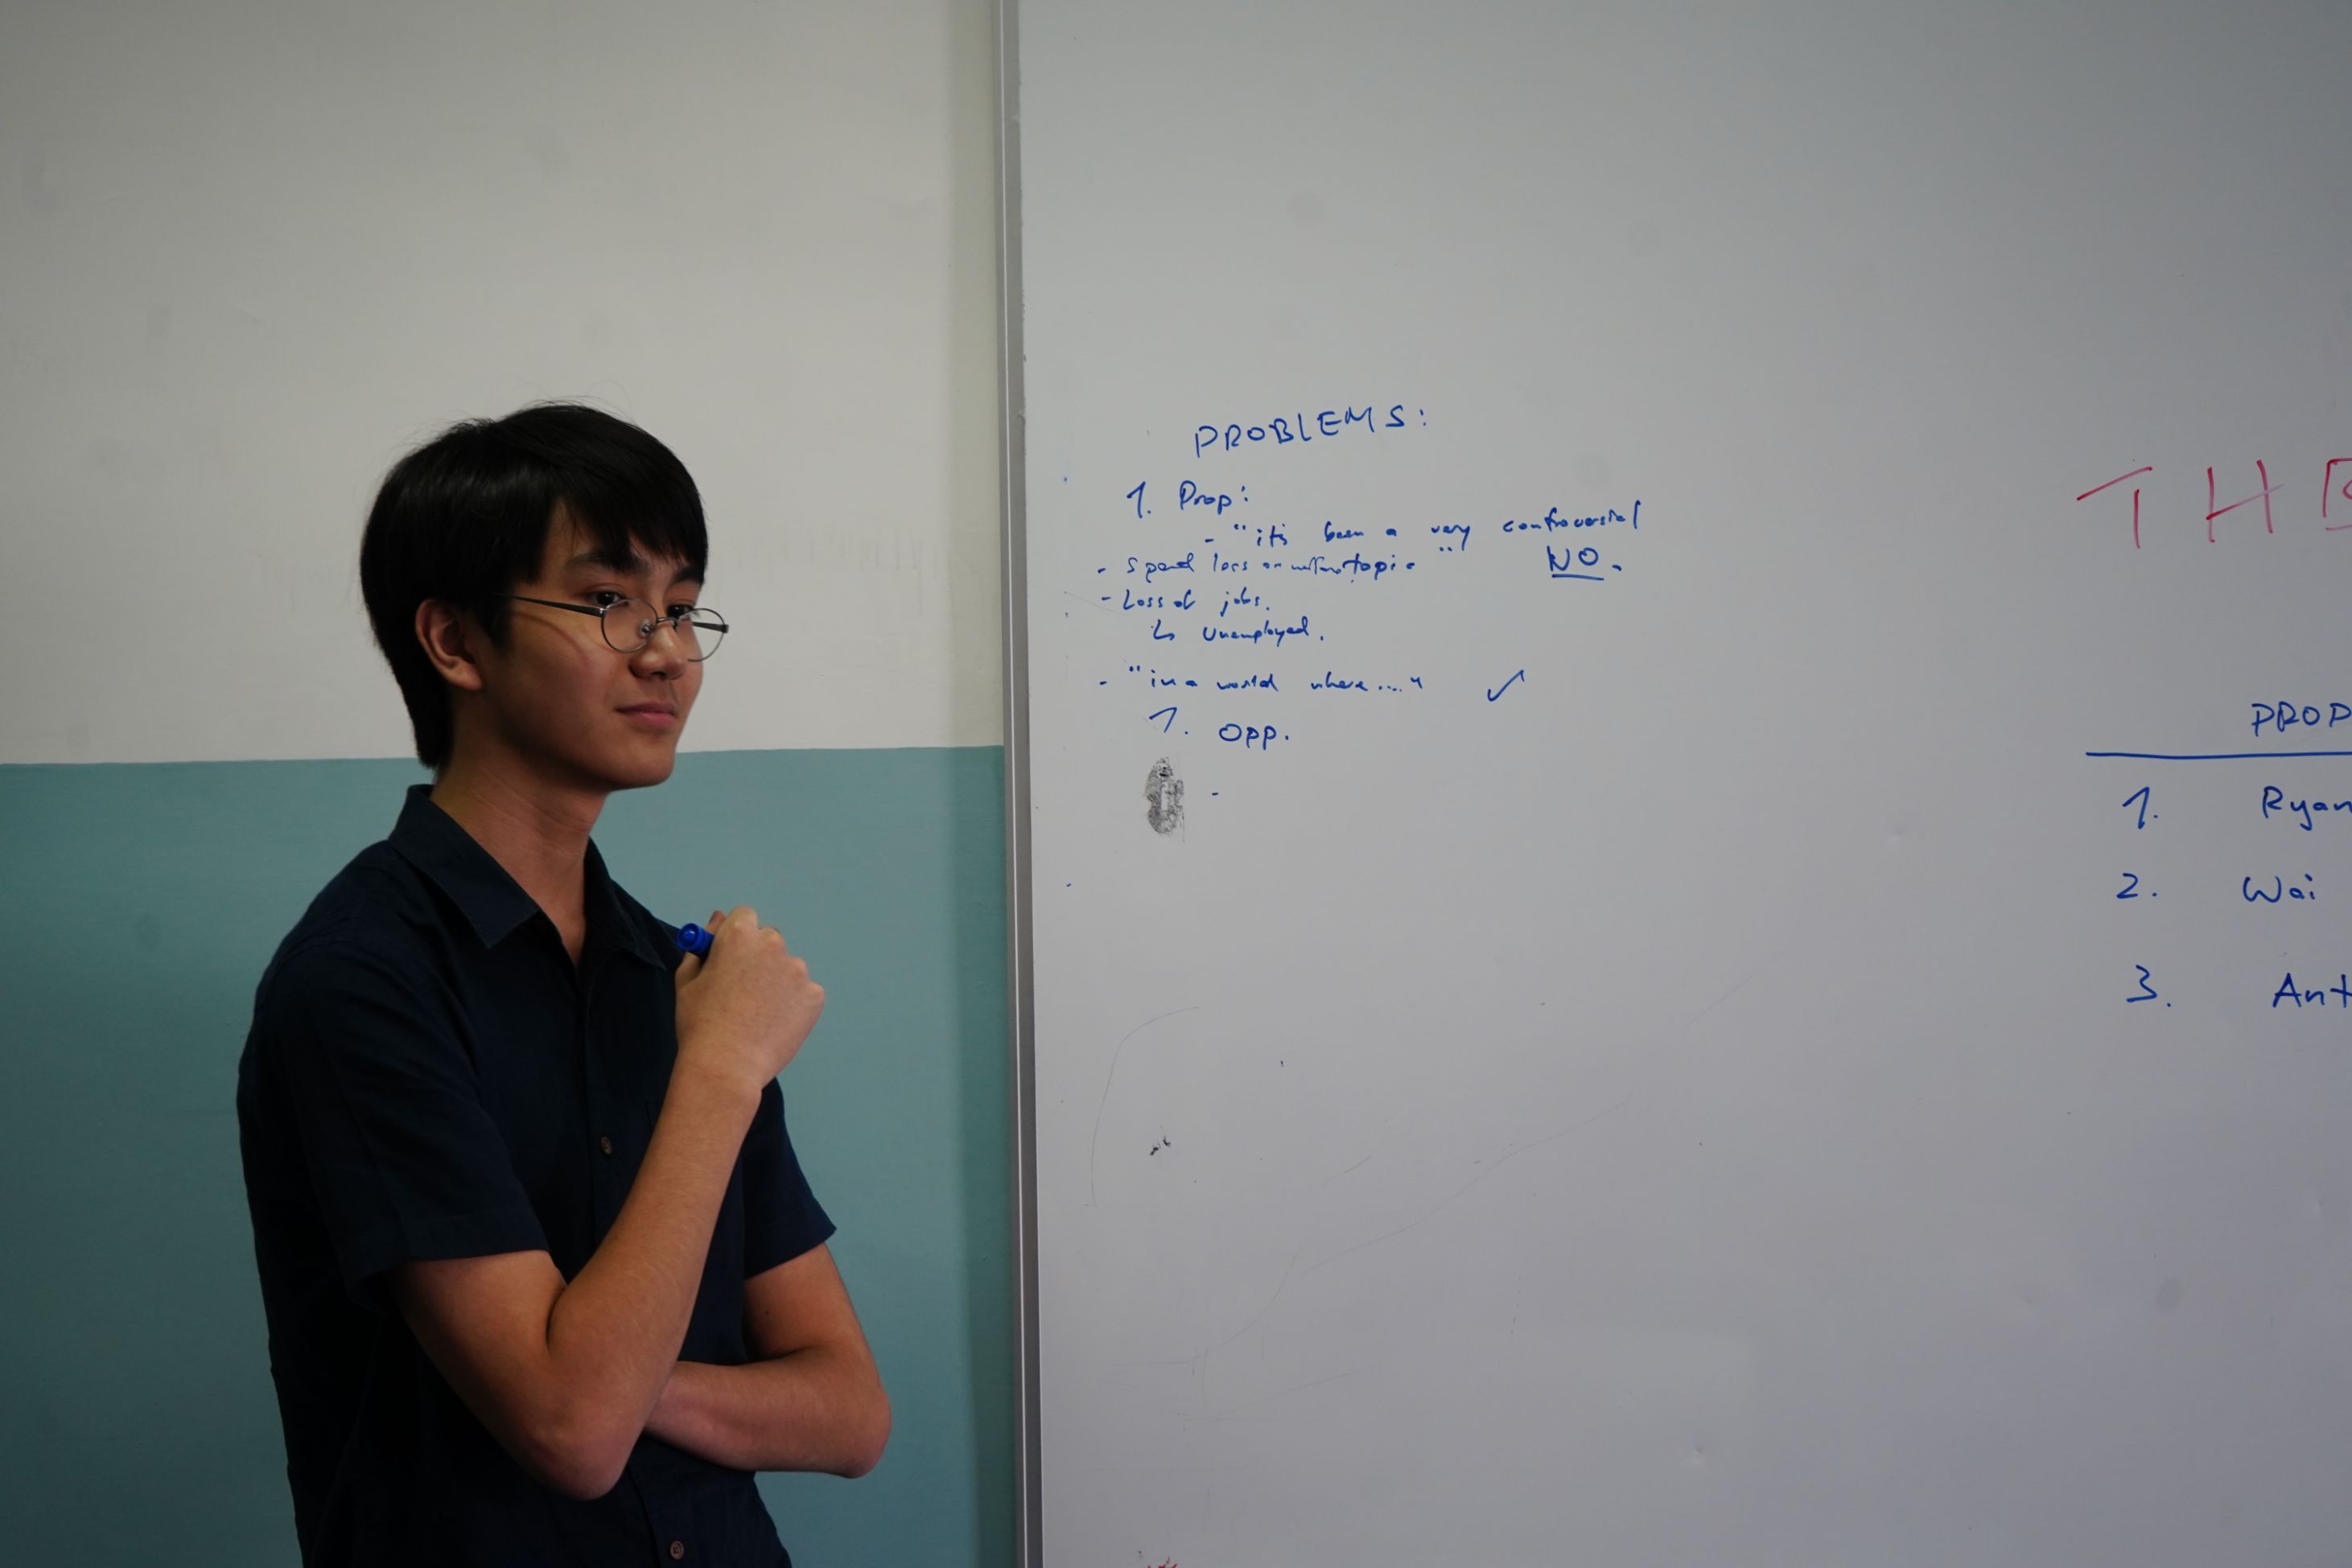 PROBLEMS:
1. Prop:
- "it's been a very controversial
topic" NO.
- Spend less on
- Loss of jobs.
↳ Unemployed.
- "in a world where...." ✓
1. Opp.
-
TH
PROP
1. Ryan
2. Wai
3. Ant